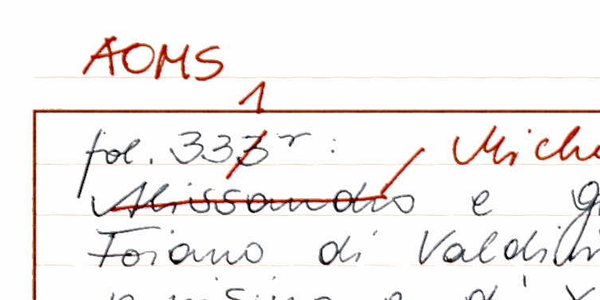 AOMS
1
fol. 333r :
Miche
Alissandro e g
Foiano di Valdich